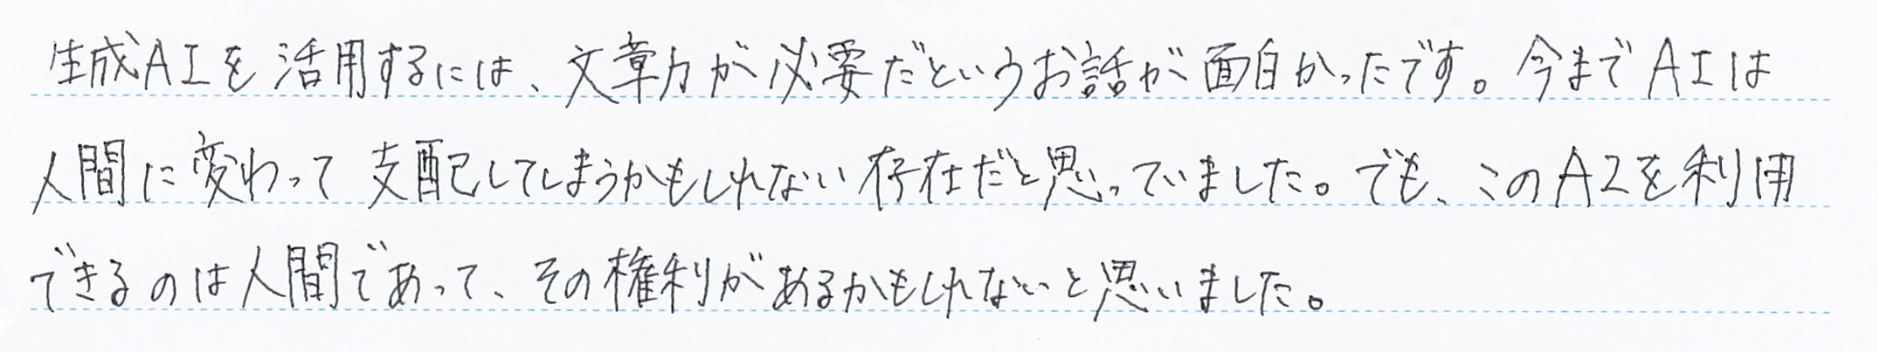 生成AIを活用するには、文章力が必要だというお話が面白かったです。今までAIは
人間に変わって支配してしまうかもしれない存在だと思っていました。でも、このAIを利用
できるのは人間であって、その権利があるかもしれないと思いました。